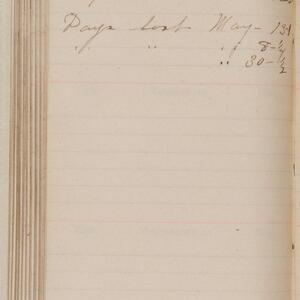 Days lost May - 13½
" " " 8-¼
" 30-½